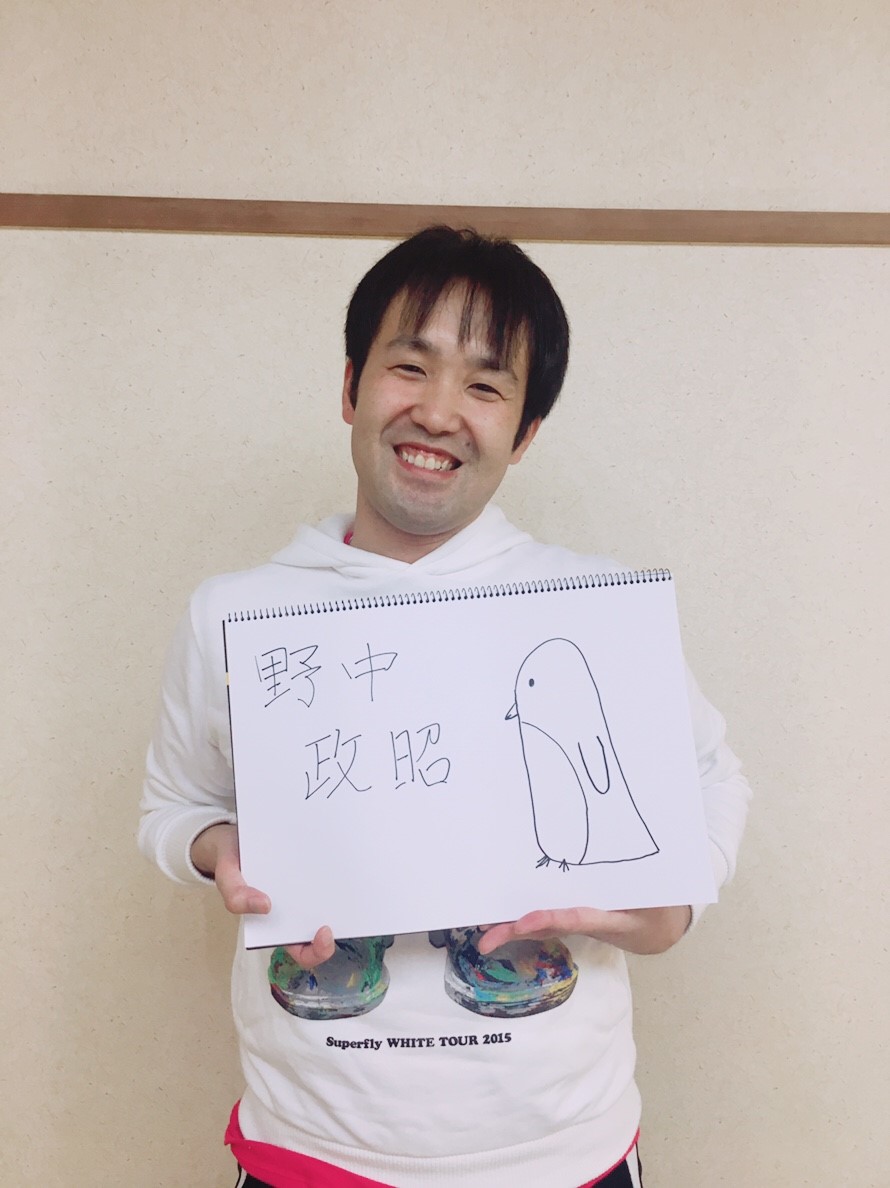 野中
政昭
Superfly WHITE TOUR 2015